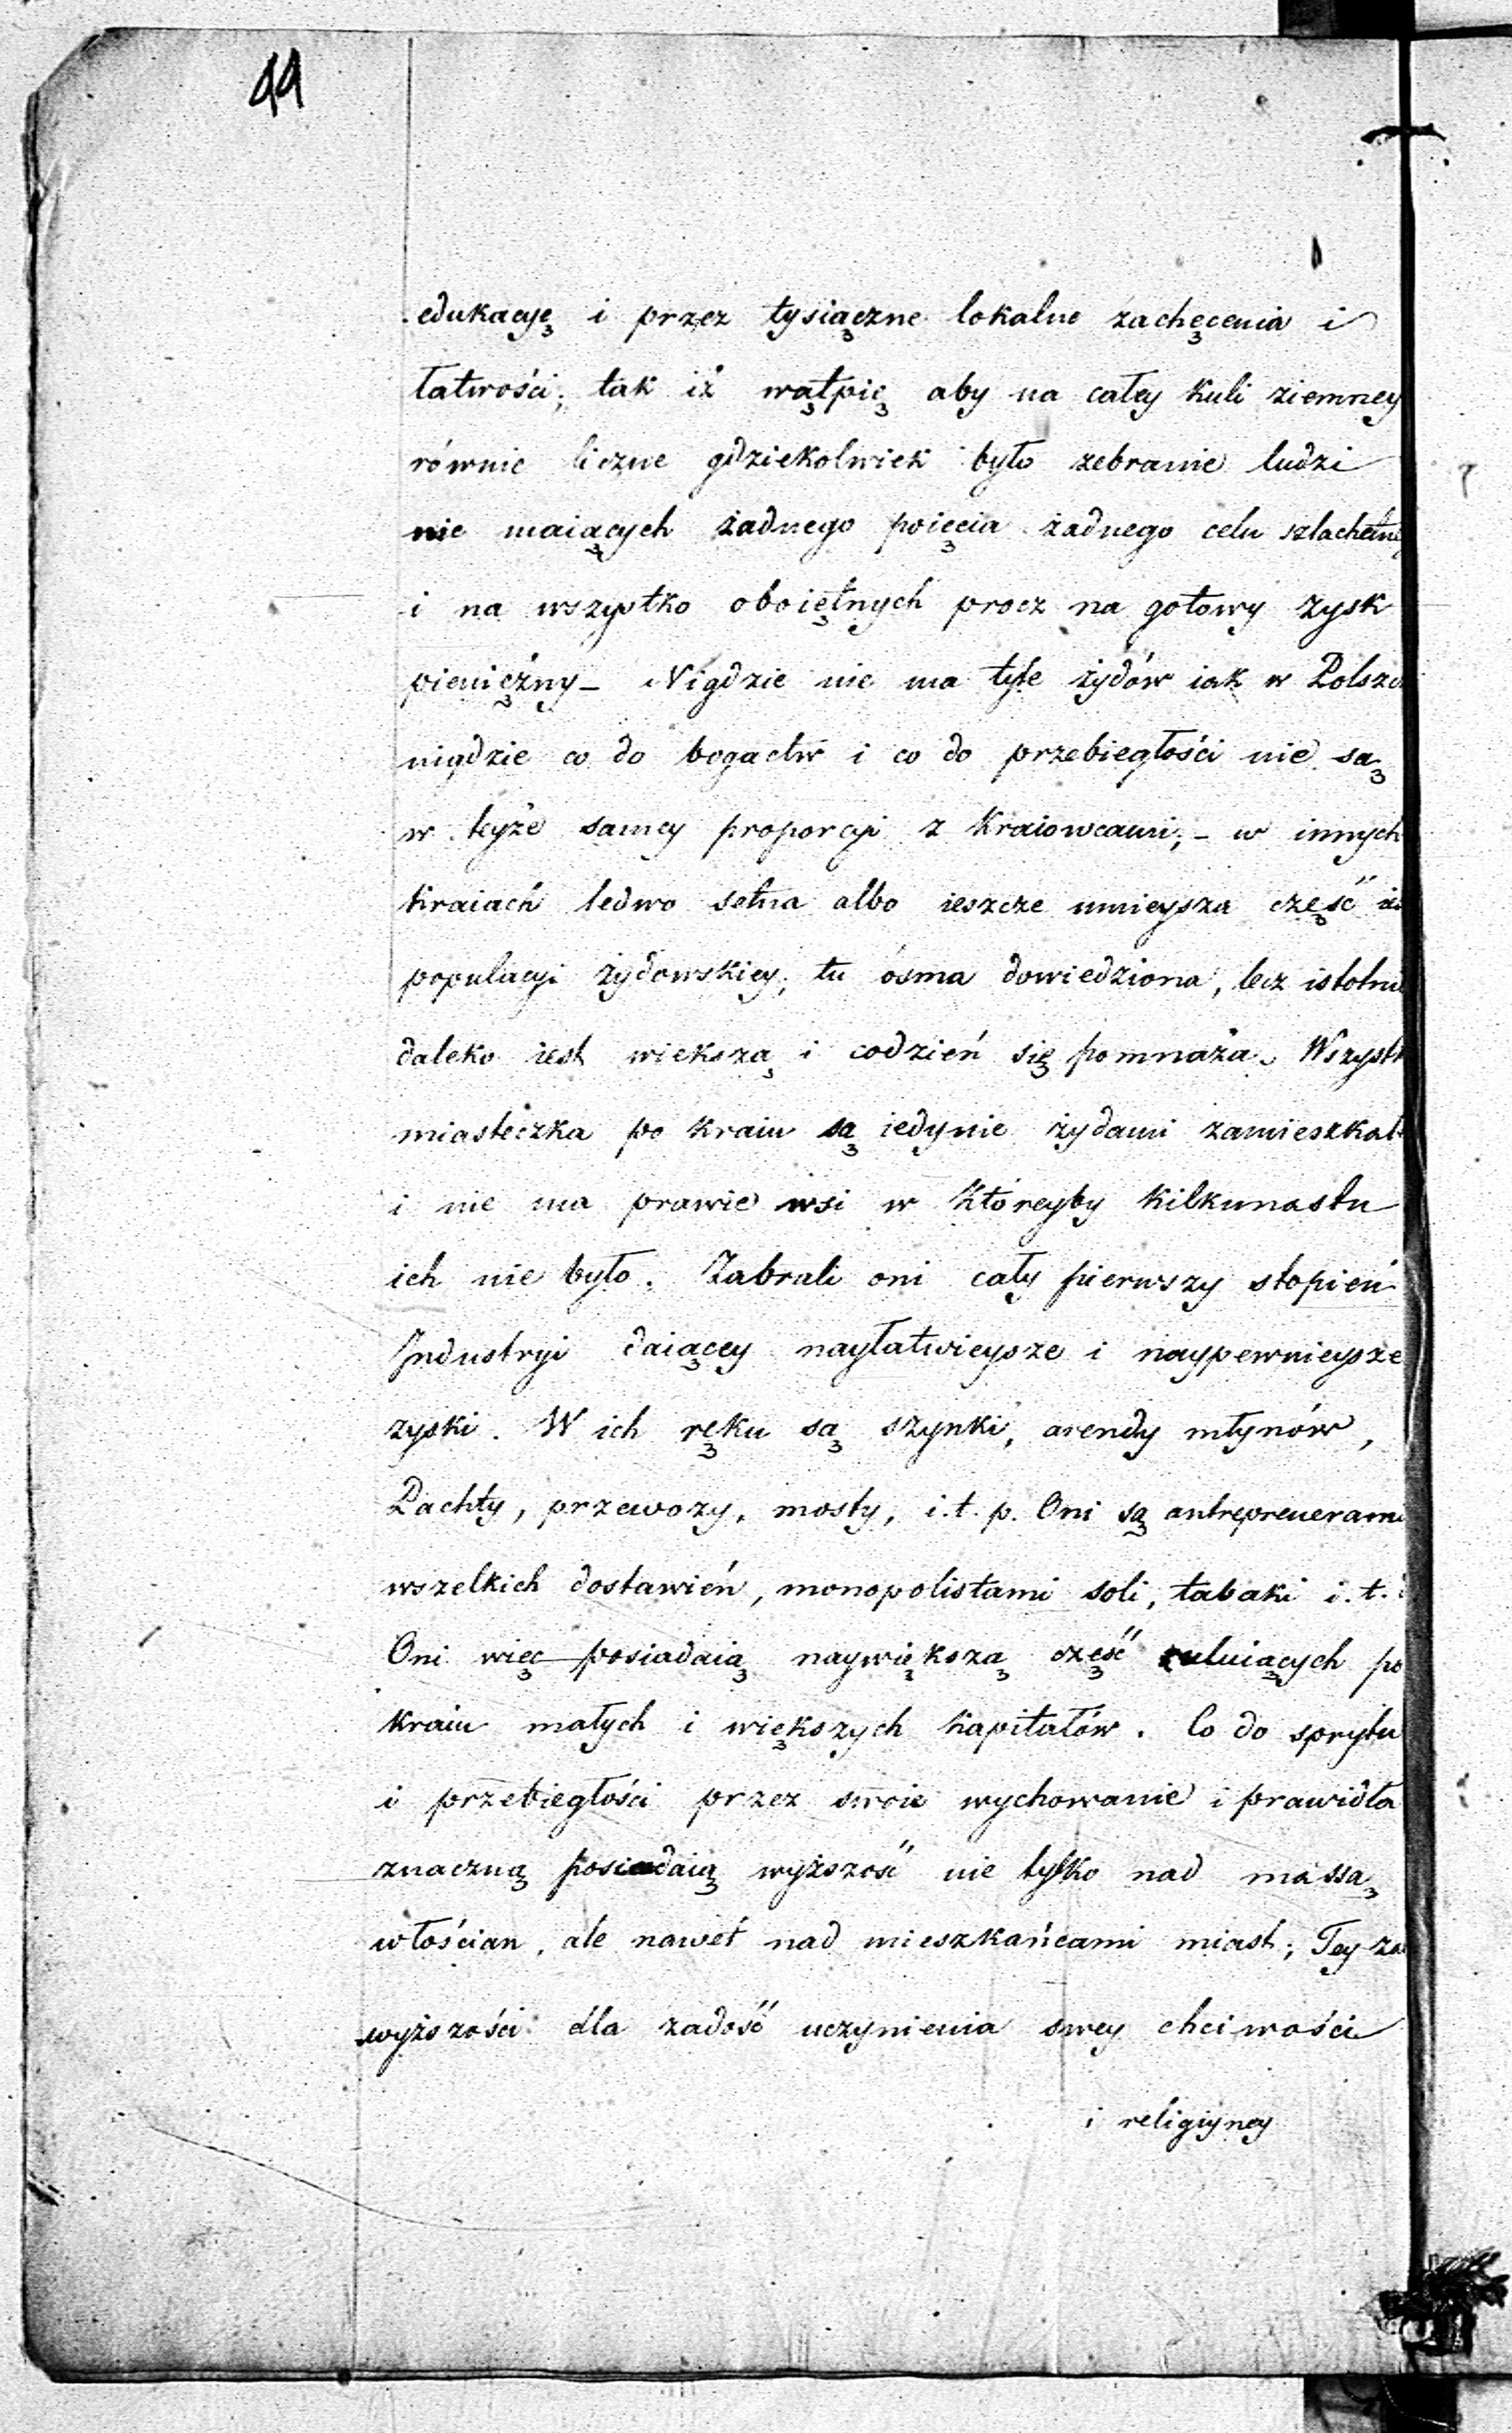 44
edukacyę i przez tysiączne lokalne zachęcenia i
łatwości; tak iż wątpię aby na całey kuli ziemney
równie liczne gdziekolwiek było zebranie ludzi
nie maiących żadnego poięcia żadnego celu szlachetne
i na wszystko oboiętnych procz na gotowy zysk
pieniężny – Nigdzie nie ma tyle żydów iak w Polsz
nigdzie co do bogactw i co do przebiegłości nie są
w teyże samey proporcyi z kraiowcami; – w innych
kraiach ledwo setna albo ieszcze mnieysza część ies
populacyi żydowskiey; tu ósma dowiedziona, lecz istotnie
daleko iest wieksza i codzień się pomnaża. Wszystk
miasteczka po kraiu są iedynie żydami zamieszkał
i nie ma prawie wsi w któreyby kilkunastu
ich nie było. Zabrali oni cały pierwszy stopień
Industryi daiącey nayłatwieysze i naypewnieysze
zyski. W ich ręku są szynki, arendy młynów,
Pachty, przewozy, mosty, i.t.p. Oni są antreprenerami
wszelkich dostawień, monopolistami soli, tabaki i.t.
Oni więc posiadaią naywiększą część po
kraiu małych i większych kapitałów. Co do sprytu
i przebiegłości przez swoie wychowanie i prawidła
znaczną posiadaią wyższość nie tylko nad massą
włościan, ale nawet nad mieszkańcami miast; Tey za
wyższości dla zadość uczynienia swey chciwości
i religiyney